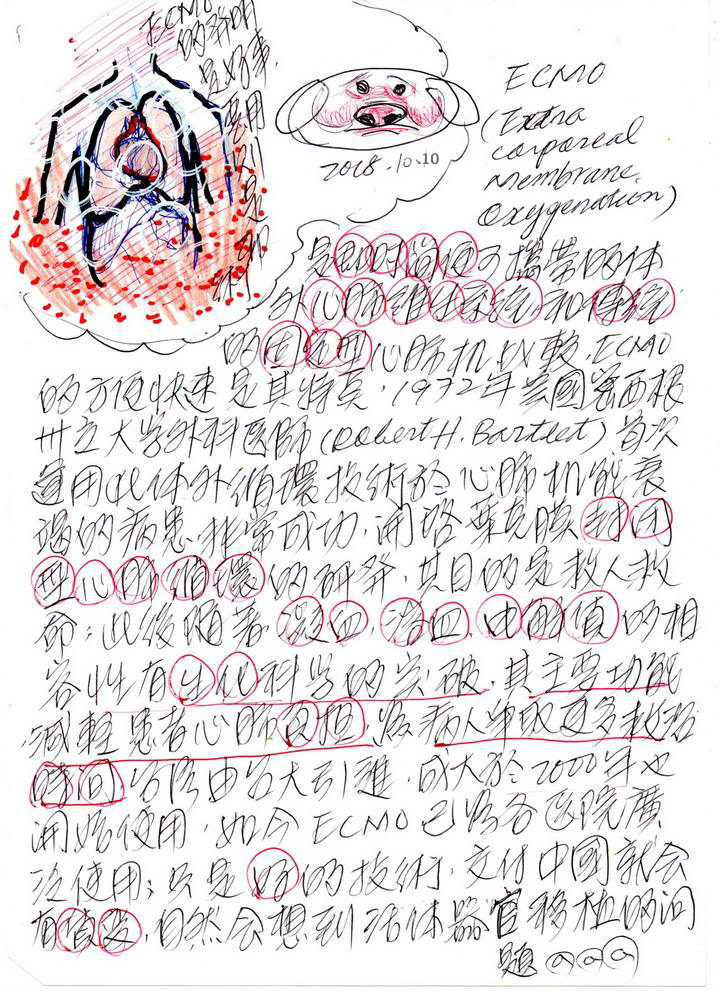 ECMO
的發明
是好事
要用
到是
2018.10.10
ECMO
(Extra
corporeal
Membrane
Oxygenation)
是即時簡便可攜帶的体
外心肺維生系統和傳統
的心肺机比較,ECMO
的方便快速是其特莫,1972年美國密西根
州立大学外科医師(Robert H. Bartlett)首次
運用此体外循環技術於心肺机能衰
竭的病患,非常成功,開啓葉克膜封闭
型心肺循環的研發,其目的是救人救
命;此後隨著凝血,溶血,电解質的相
容性有生化科学的突破,其主要功能
減輕患者心肺負担,為病人争取更多救治
時间台湾由台大引進,成大於2000年也
開始使用,如今ECMO已為各医院廣
泛使用;只是好的技術,交付中國就会
有質变,自然会想到活体器官移植的问
題